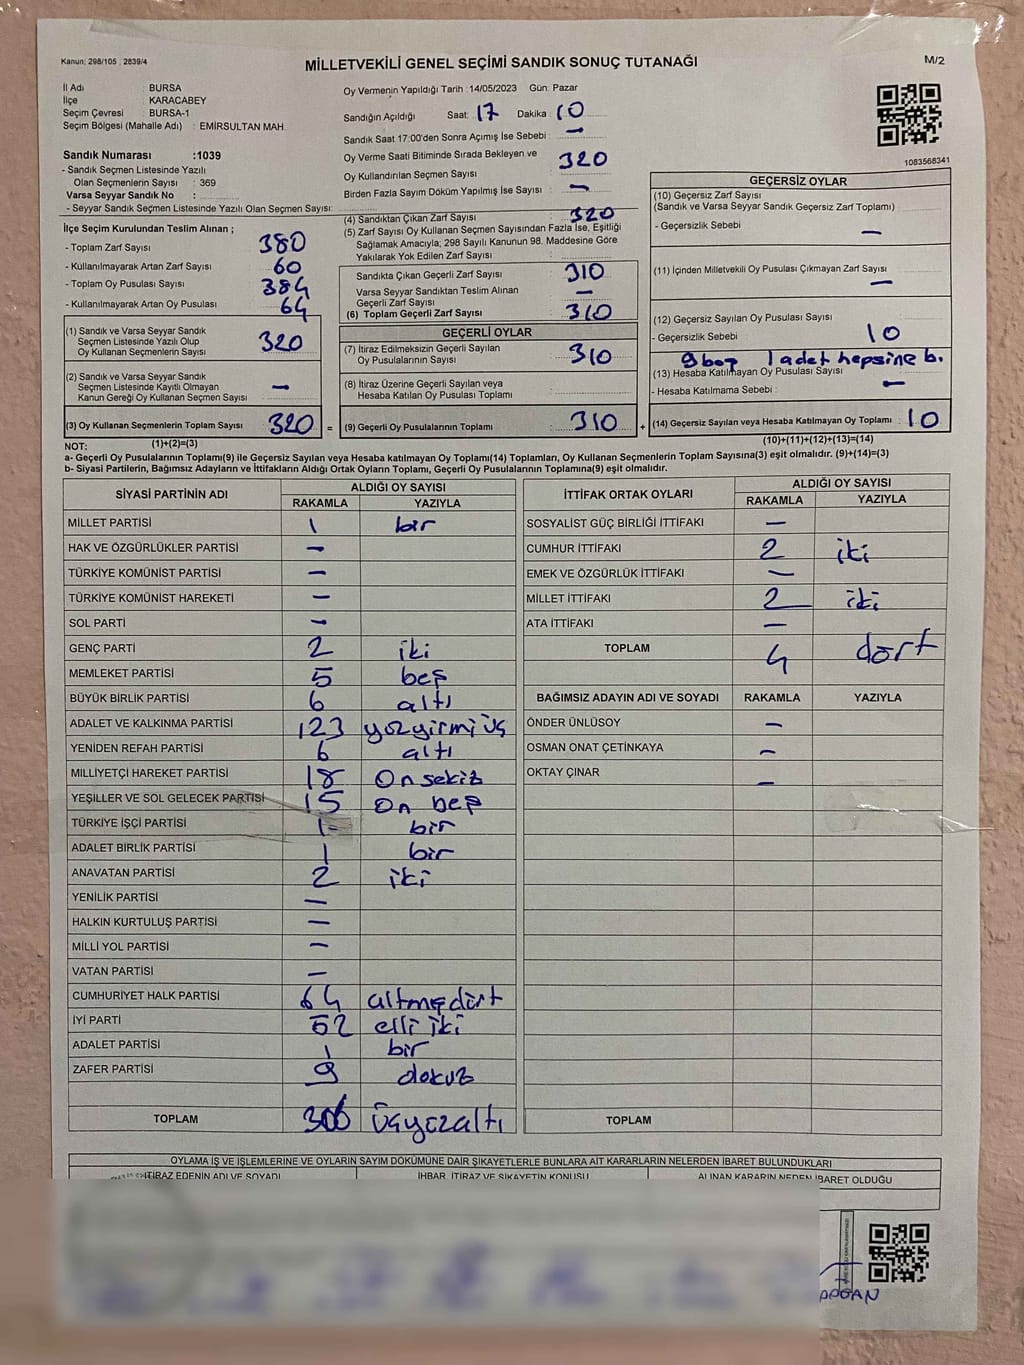 Kanun: 298/105 , 2839/4
MİLLETVEKİLİ GENEL SEÇİMİ SANDIK SONUÇ TUTANAĞI
M/2
İl Adı : BURSA
İlçe : KARACABEY
Seçim Çevresi : BURSA-1
Seçim Bölgesi (Mahalle Adı) : EMİRSULTAN MAH.
Sandık Numarası :1039
- Sandık Seçmen Listesinde Yazılı
Olan Seçmenlerin Sayısı : 369
Varsa Seyyar Sandık No :
- Seyyar Sandık Seçmen Listesinde Yazılı Olan Seçmen Sayısı:
Oy Vermenin Yapıldığı Tarih : 14/05/2023 Gün: Pazar
Sandığın Açıldığı Saat: 17 Dakika : 10
Sandık Saat 17:00'den Sonra Açımış İse Sebebi : —
Oy Verme Saati Bitiminde Sırada Bekleyen ve
Oy Kullandırılan Seçmen Sayısı : 320
Birden Fazla Sayım Döküm Yapılmış İse Sayısı : —
1083568341
İlçe Seçim Kurulundan Teslim Alınan ;
- Toplam Zarf Sayısı : 380
- Kullanılmayarak Artan Zarf Sayısı : 60
- Toplam Oy Pusulası Sayısı : 384
- Kullanılmayarak Artan Oy Pusulası : 64
(1) Sandık ve Varsa Seyyar Sandık
Seçmen Listesinde Yazılı Olup
Oy Kullanan Seçmenlerin Sayısı : 320
(2) Sandık ve Varsa Seyyar Sandık
Seçmen Listesinde Kayıtlı Olmayan
Kanun Gereği Oy Kullanan Seçmen Sayısı : —
(3) Oy Kullanan Seçmenlerin Toplam Sayısı : 320 =
(4) Sandıktan Çıkan Zarf Sayısı : 320
(5) Zarf Sayısı Oy Kullanan Seçmen Sayısından Fazla İse, Eşitliği
Sağlamak Amacıyla; 298 Sayılı Kanunun 98. Maddesine Göre
Yakılarak Yok Edilen Zarf Sayısı :
Sandıkta Çıkan Geçerli Zarf Sayısı : 310
Varsa Seyyar Sandıktan Teslim Alınan
Geçerli Zarf Sayısı : —
(6) Toplam Geçerli Zarf Sayısı : 310
GEÇERLİ OYLAR
(7) İtiraz Edilmeksizin Geçerli Sayılan
Oy Pusulalarının Sayısı : 310
(8) İtiraz Üzerine Geçerli Sayılan veya
Hesaba Katılan Oy Pusulası Toplamı :
(9) Geçerli Oy Pusulalarının Toplamı : 310 +
GEÇERSİZ OYLAR
(10) Geçersiz Zarf Sayısı
(Sandık ve Varsa Seyyar Sandık Geçersiz Zarf Toplamı) :
- Geçersizlik Sebebi : —
(11) İçinden Milletvekili Oy Pusulası Çıkmayan Zarf Sayısı : —
(12) Geçersiz Sayılan Oy Pusulası Sayısı :
- Geçersizlik Sebebi : 10
9 boş 1 adet hepsine b.
(13) Hesaba Katılmayan Oy Pusulası Sayısı :
- Hesaba Katılmama Sebebi : —
(14) Geçersiz Sayılan veya Hesaba Katılmayan Oy Toplamı : 10
NOT: (1)+(2)=(3) (10)+(11)+(12)+(13)=(14)
a- Geçerli Oy Pusulalarının Toplamı(9) ile Geçersiz Sayılan veya Hesaba katılmayan Oy Toplamı(14) Toplamları, Oy Kullanan Seçmenlerin Toplam Sayısına(3) eşit olmalıdır. (9)+(14)=(3)
b- Siyasi Partilerin, Bağımsız Adayların ve İttifakların Aldığı Ortak Oyların Toplamı, Geçerli Oy Pusulalarının Toplamına(9) eşit olmalıdır.
SİYASİ PARTİNİN ADI ALDIĞI OY SAYISI
RAKAMLA YAZIYLA
MİLLET PARTİSİ 1 bir
HAK VE ÖZGÜRLÜKLER PARTİSİ —
TÜRKİYE KOMÜNİST PARTİSİ —
TÜRKİYE KOMÜNİST HAREKETİ —
SOL PARTİ —
GENÇ PARTİ 2 iki
MEMLEKET PARTİSİ 5 beş
BÜYÜK BİRLİK PARTİSİ 6 altı
ADALET VE KALKINMA PARTİSİ 123 yüzyirmi üç
YENİDEN REFAH PARTİSİ 6 altı
MİLLİYETÇİ HAREKET PARTİSİ 18 On sekiz
YEŞİLLER VE SOL GELECEK PARTİSİ 15 On beş
TÜRKİYE İŞÇİ PARTİSİ 1 bir
ADALET BİRLİK PARTİSİ 1 bir
ANAVATAN PARTİSİ 2 iki
YENİLİK PARTİSİ —
HALKIN KURTULUŞ PARTİSİ —
MİLLİ YOL PARTİSİ —
VATAN PARTİSİ —
CUMHURİYET HALK PARTİSİ 64 altmışdört
İYİ PARTİ 52 elli iki
ADALET PARTİSİ 1 bir
ZAFER PARTİSİ 9 dokuz
TOPLAM 306 üçyüzaltı
İTTİFAK ORTAK OYLARI ALDIĞI OY SAYISI
RAKAMLA YAZIYLA
SOSYALİST GÜÇ BİRLİĞİ İTTİFAKI —
CUMHUR İTTİFAKI 2 iki
EMEK VE ÖZGÜRLÜK İTTİFAKI —
MİLLET İTTİFAKI 2 iki
ATA İTTİFAKI —
TOPLAM 4 dört
BAĞIMSIZ ADAYIN ADI VE SOYADI RAKAMLA YAZIYLA
ÖNDER ÜNLÜSOY —
OSMAN ONAT ÇETİNKAYA —
OKTAY ÇINAR —
TOPLAM
OYLAMA İŞ VE İŞLEMLERİNE VE OYLARIN SAYIM DÖKÜMÜNE DAİR ŞİKAYETLERLE BUNLARA AİT KARARLARIN NELERDEN İBARET BULUNDUKLARI
İTİRAZ EDENİN ADI VE SOYADI İHBAR, İTİRAZ VE ŞİKAYETİN KONUSU ALINAN KARARIN NEDEN İBARET OLDUĞU